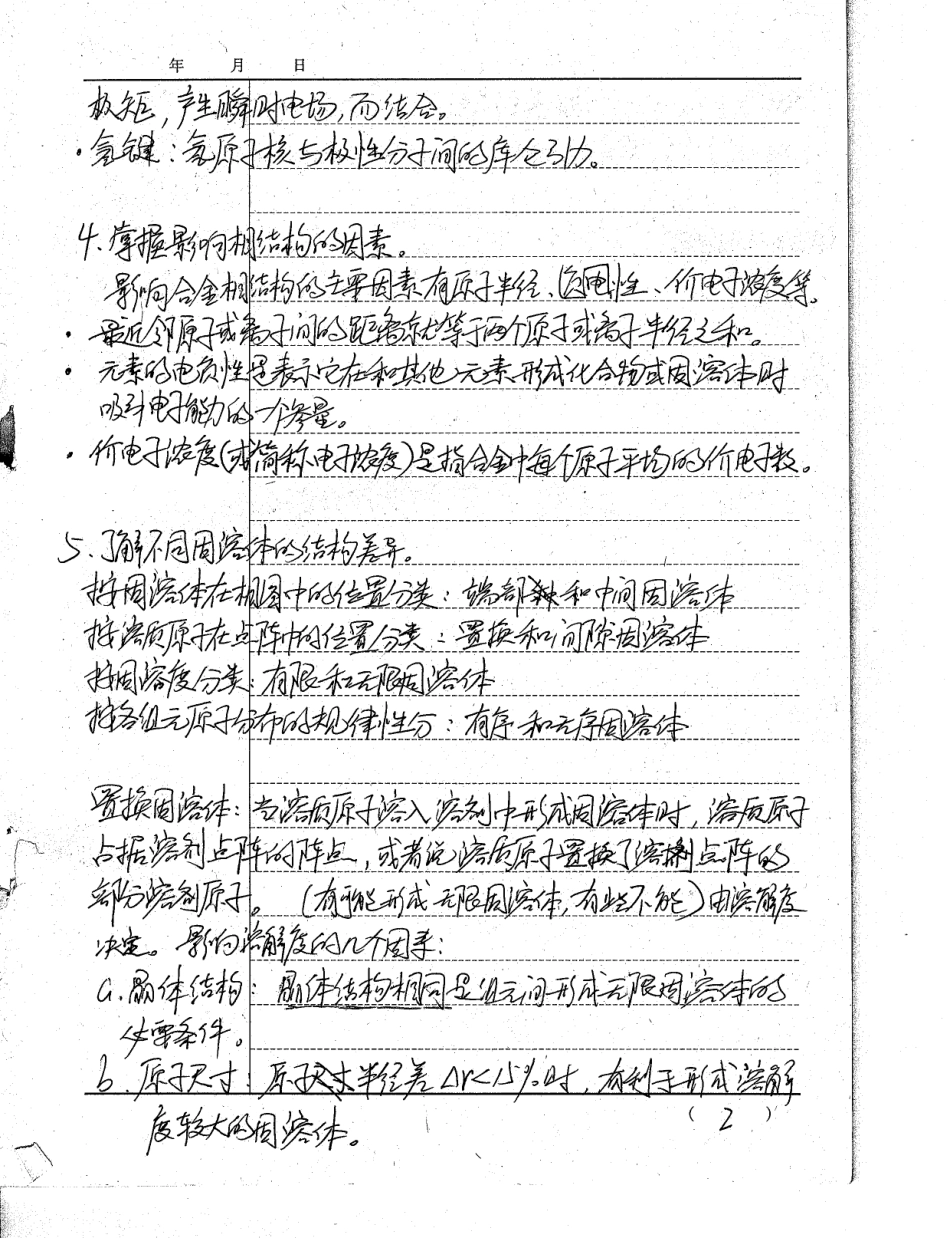 年 月 日
极矩，产生瞬时电场，而结合。
·氢键：氢原子核与极性分子间的库仑引力。
4、掌握影响相结构的因素。
影响合金相结构的主要因素有原子半径、电性、价电子浓度等。
·最近邻原子或离子间的距离就等于两个原子或离子半径之和。
·元素的电负性是表示它在和其他元素形成化合物或固溶体时
吸引电子能力的一个参量。
·价电子浓度(或简称电子浓度)是指合金中每个原子平均的价电子数。
5、了解不同固溶体的结构差异。
按固溶体在相图中的位置分类：端部和中间固溶体
按溶质原子在点阵中的位置分类：置换和间隙固溶体
按固溶度分类：有限和无限固溶体
按各组元原子分布的规律性分：有序和无序固溶体
置换固溶体：当溶质原子溶入溶剂中形成固溶体时，溶质原子
占据溶剂点阵的阵点，或者说溶质原子置换了溶剂点阵的
部分溶剂原子。(有可能形成无限固溶体，有些不能)由溶解度
决定。影响溶解度的几个因素：
a.晶体结构：晶体结构相同是组元间形成无限固溶体的
必要条件。
b.原子尺寸：原子半径差Δr<15%时，有利于形成溶解
度较大的固溶体。
(2)